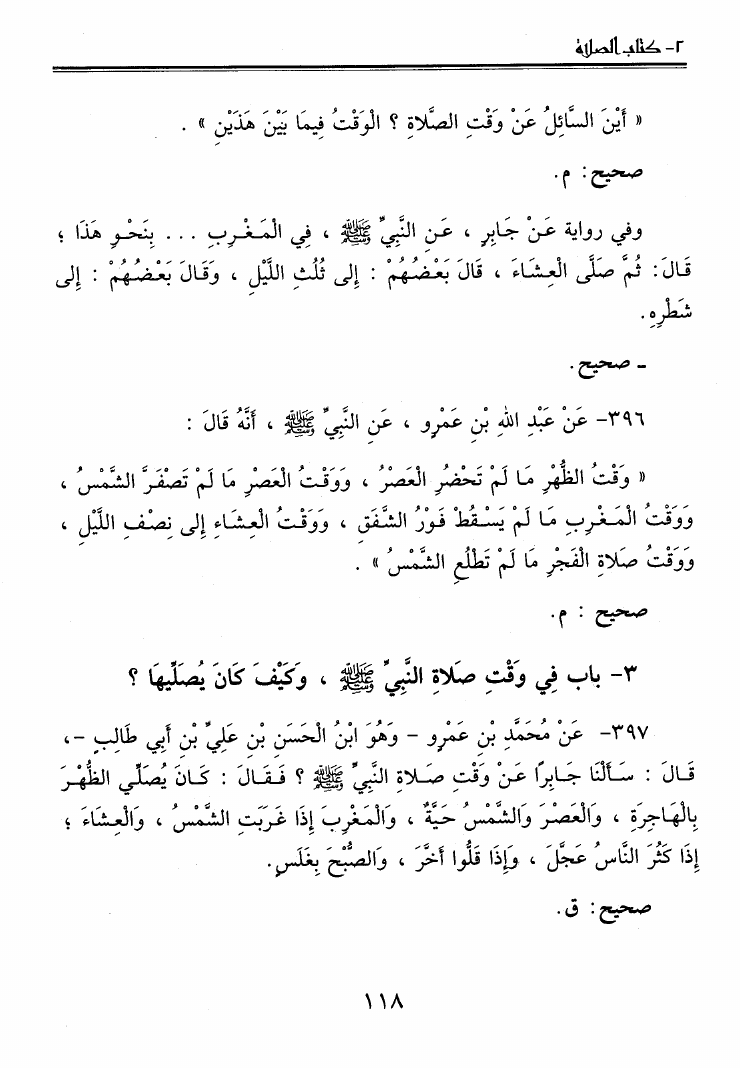 ٢- كتاب الصلاة
« أَيْنَ السَّائِلُ عَنْ وَقْتِ الصَّلَاةِ ؟ الْوَقْتُ فِيمَا بَيْنَ هَذَيْنِ » .
صحيح : م.
وفي رواية عَنْ جَابِرٍ ، عَنِ النَّبِيِّ ﷺ ، فِي الْمَغْرِبِ ... بِنَحْوِ هَذَا ؛
قَالَ: ثُمَّ صَلَّى الْعِشَاءَ ، قَالَ بَعْضُهُمْ : إِلى ثُلُثِ اللَّيْلِ ، وَقَالَ بَعْضُهُمْ : إِلى
شَطْرِهِ.
ـ صحيح.
٣٩٦- عَنْ عَبْدِ اللهِ بْنِ عَمْرٍو ، عَنِ النَّبِيِّ ﷺ ، أَنَّهُ قَالَ :
« وَقْتُ الظُّهْرِ مَا لَمْ تَحْضُرِ الْعَصْرُ ، وَوَقْتُ الْعَصْرِ مَا لَمْ تَصْفَرَّ الشَّمْسُ ،
وَوَقْتُ الْمَغْرِبِ مَا لَمْ يَسْقُطْ فَوْرُ الشَّفَقِ ، وَوَقْتُ الْعِشَاءِ إِلى نِصْفِ اللَّيْلِ ،
وَوَقْتُ صَلَاةِ الْفَجْرِ مَا لَمْ تَطْلُعِ الشَّمْسُ » .
صحيح : م.
٣- باب فِي وَقْتِ صَلَاةِ النَّبِيِّ ﷺ ، وَكَيْفَ كَانَ يُصَلِّيهَا ؟
٣٩٧- عَنْ مُحَمَّدِ بْنِ عَمْرٍو - وَهُوَ ابْنُ الْحَسَنِ بْنِ عَلِيِّ بْنِ أَبِي طَالِبٍ -،
قَالَ : سَأَلْنَا جَابِرًا عَنْ وَقْتِ صَلَاةِ النَّبِيِّ ﷺ ؟ فَقَالَ : كَانَ يُصَلِّي الظُّهْرَ
بِالْهَاجِرَةِ ، وَالْعَصْرَ وَالشَّمْسُ حَيَّةٌ ، وَالْمَغْرِبَ إِذَا غَرَبَتِ الشَّمْسُ ، وَالْعِشَاءَ ؛
إِذَا كَثُرَ النَّاسُ عَجَّلَ ، وَإِذَا قَلُّوا أَخَّرَ ، وَالصُّبْحَ بِغَلَسٍ.
صحيح: ق.
١١٨